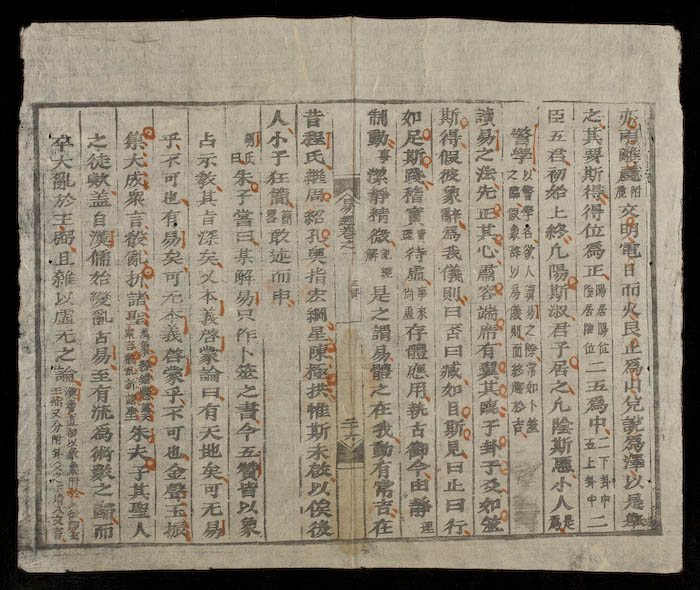 亦雨離麗附麗文明電日而火艮止為山兌說為澤以是舉
之其要斯得得位為正陽居陽位陰居陰位二五為中二下卦中五上卦中二
臣五君初始上終凡陽斯淑君子居之凡陰斯慝小人是為
警學以警學名欲人讀易之際常如卜筮之臨假象辭以為儀則而移應於吉
讀易之法先正其心肅容端席有翼其臨于卦于爻如筮
斯得假彼象辭為我儀則曰否曰臧如目斯見曰止曰行
如足斯踐稽實理待虛事來尚虛存體應用執古御今由靜理
制動事潔靜精微是之謂易體之在我動有常吉在
昔程氏繼周紹孔奧指宏綱星陳極拱惟斯未啟以俟後
人小子狂簡簡畧敢述而申
胡氏曰朱子嘗曰某解易只作卜筮之書今五贊皆以象
占示教其旨深矣又本義啓蒙論曰有天地矣可无易
乎不可也有易矣可无本義啓蒙乎不可也金聲玉振
集大成衆言殽亂折諸聖衆言殽亂折諸聖朱夫子其聖人
之徒歟盖自漢儒始變亂古易至有流為術數之歸而
卒大亂於王弼且雜以虛无之論